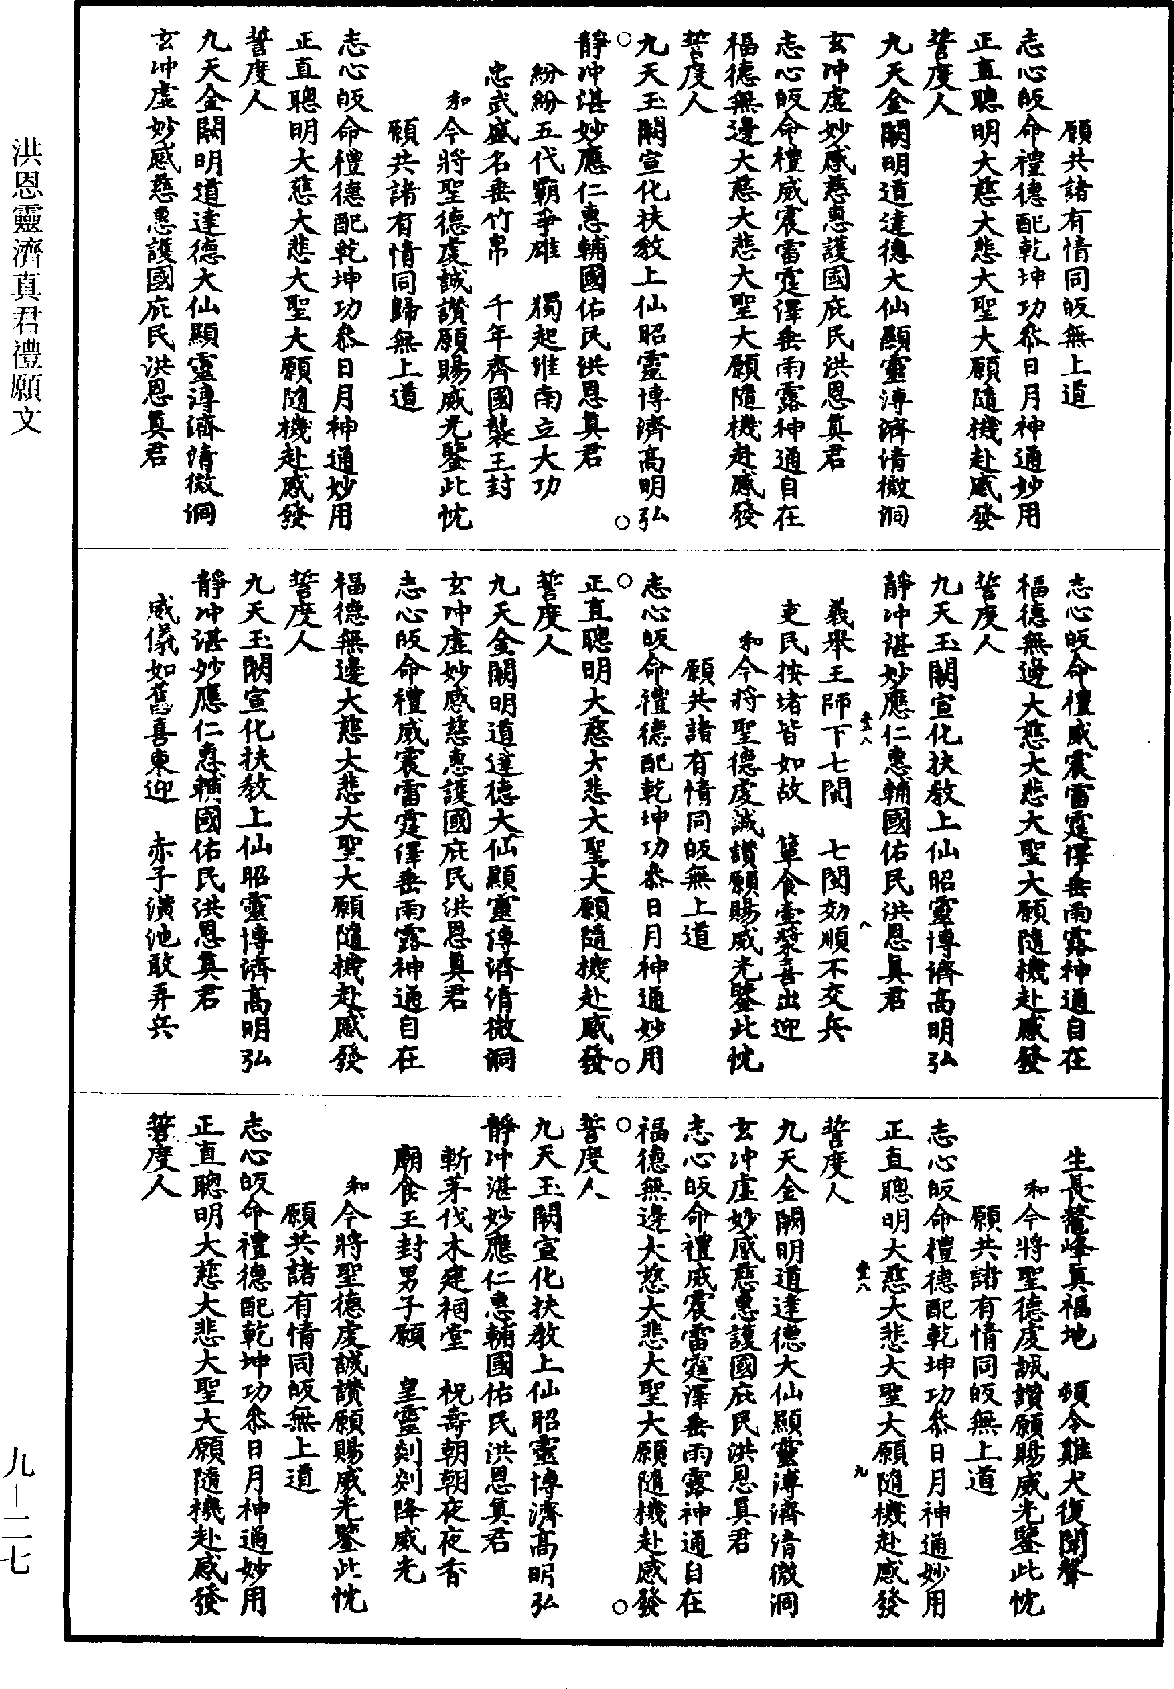 願共諸有情同皈無上道
志心皈命禮德配乾坤功叅日月神通妙用
正直聰明大慈大悲大聖大願隨機赴感發
誓度人
九天金闕明道達德大仙顯靈溥濟清微洞
玄冲虛妙感慈惠護國庇民洪恩真君
志心皈命禮威震雷霆澤垂雨露神通自在
福德無邊大慈大悲大聖大願隨機赴感發
誓度人
九天玉闕宣化扶教上仙昭靈博濟高明弘
靜冲湛妙應仁惠輔國佑民洪恩真君
紛紛五代霸爭雄　獨起淮南立大功
忠武盛名垂竹帛　千年齊國襲王封
和今將聖德虔誠讚願賜威光鑒此忱
願共諸有情同歸無上道
志心皈命禮德配乾坤功叅日月神通妙用
正直聰明大慈大悲大聖大願隨機赴感發
誓度人
九天金闕明道達德大仙顯靈溥濟清微洞
玄冲虛妙感慈惠護國庇民洪恩真君
志心皈命禮威震雷霆澤垂雨露神通自在
福德無邊大慈大悲大聖大願隨機赴感發
誓度人
九天玉闕宣化扶教上仙昭靈博濟高明弘
靜冲湛妙應仁惠輔國佑民洪恩真君
義舉王師下七閩　七閩効順不交兵
吏民按堵皆如故　簞食壺漿喜出迎
和今將聖德虔誠讚願賜威光鑒此忱
願共諸有情同皈無上道
志心皈命禮德配乾坤功叅日月神通妙用
正直聰明大慈大悲大聖大願隨機赴感發
誓度人
九天金闕明道達德大仙顯靈溥濟清微洞
玄冲虛妙感慈惠護國庇民洪恩真君
志心皈命禮威震雷霆澤垂雨露神通自在
福德無邊大慈大悲大聖大願隨機赴感發
誓度人
九天玉闕宣化扶教上仙昭靈博濟高明弘
靜冲湛妙應仁惠輔國佑民洪恩真君
威儀如舊喜東迎　赤子潢池敢弄兵
生長鰲峰真福地　頻令雞犬復聞聲
和今將聖德虔誠讚願賜威光鑒此忱
願共諸有情同皈無上道
志心皈命禮德配乾坤功叅日月神通妙用
正直聰明大慈大悲大聖大願隨機赴感發
誓度人
九天金闕明道達德大仙顯靈溥濟清微洞
玄冲虛妙感慈惠護國庇民洪恩真君
志心皈命禮威震雷霆澤垂雨露神通自在
福德無邊大慈大悲大聖大願隨機赴感發
誓度人
九天玉闕宣化扶教上仙昭靈博濟高明弘
靜冲湛妙應仁惠輔國佑民洪恩真君
斬茅伐木建祠堂　祝壽朝朝夜夜香
廟食王封男子願　皇靈剡剡降威光
和今將聖德虔誠讚願賜威光鑒此忱
願共諸有情同皈無上道
志心皈命禮德配乾坤功叅日月神通妙用
正直聰明大慈大悲大聖大願隨機赴感發
誓度人
洪恩靈濟真君禮願文
九—二七